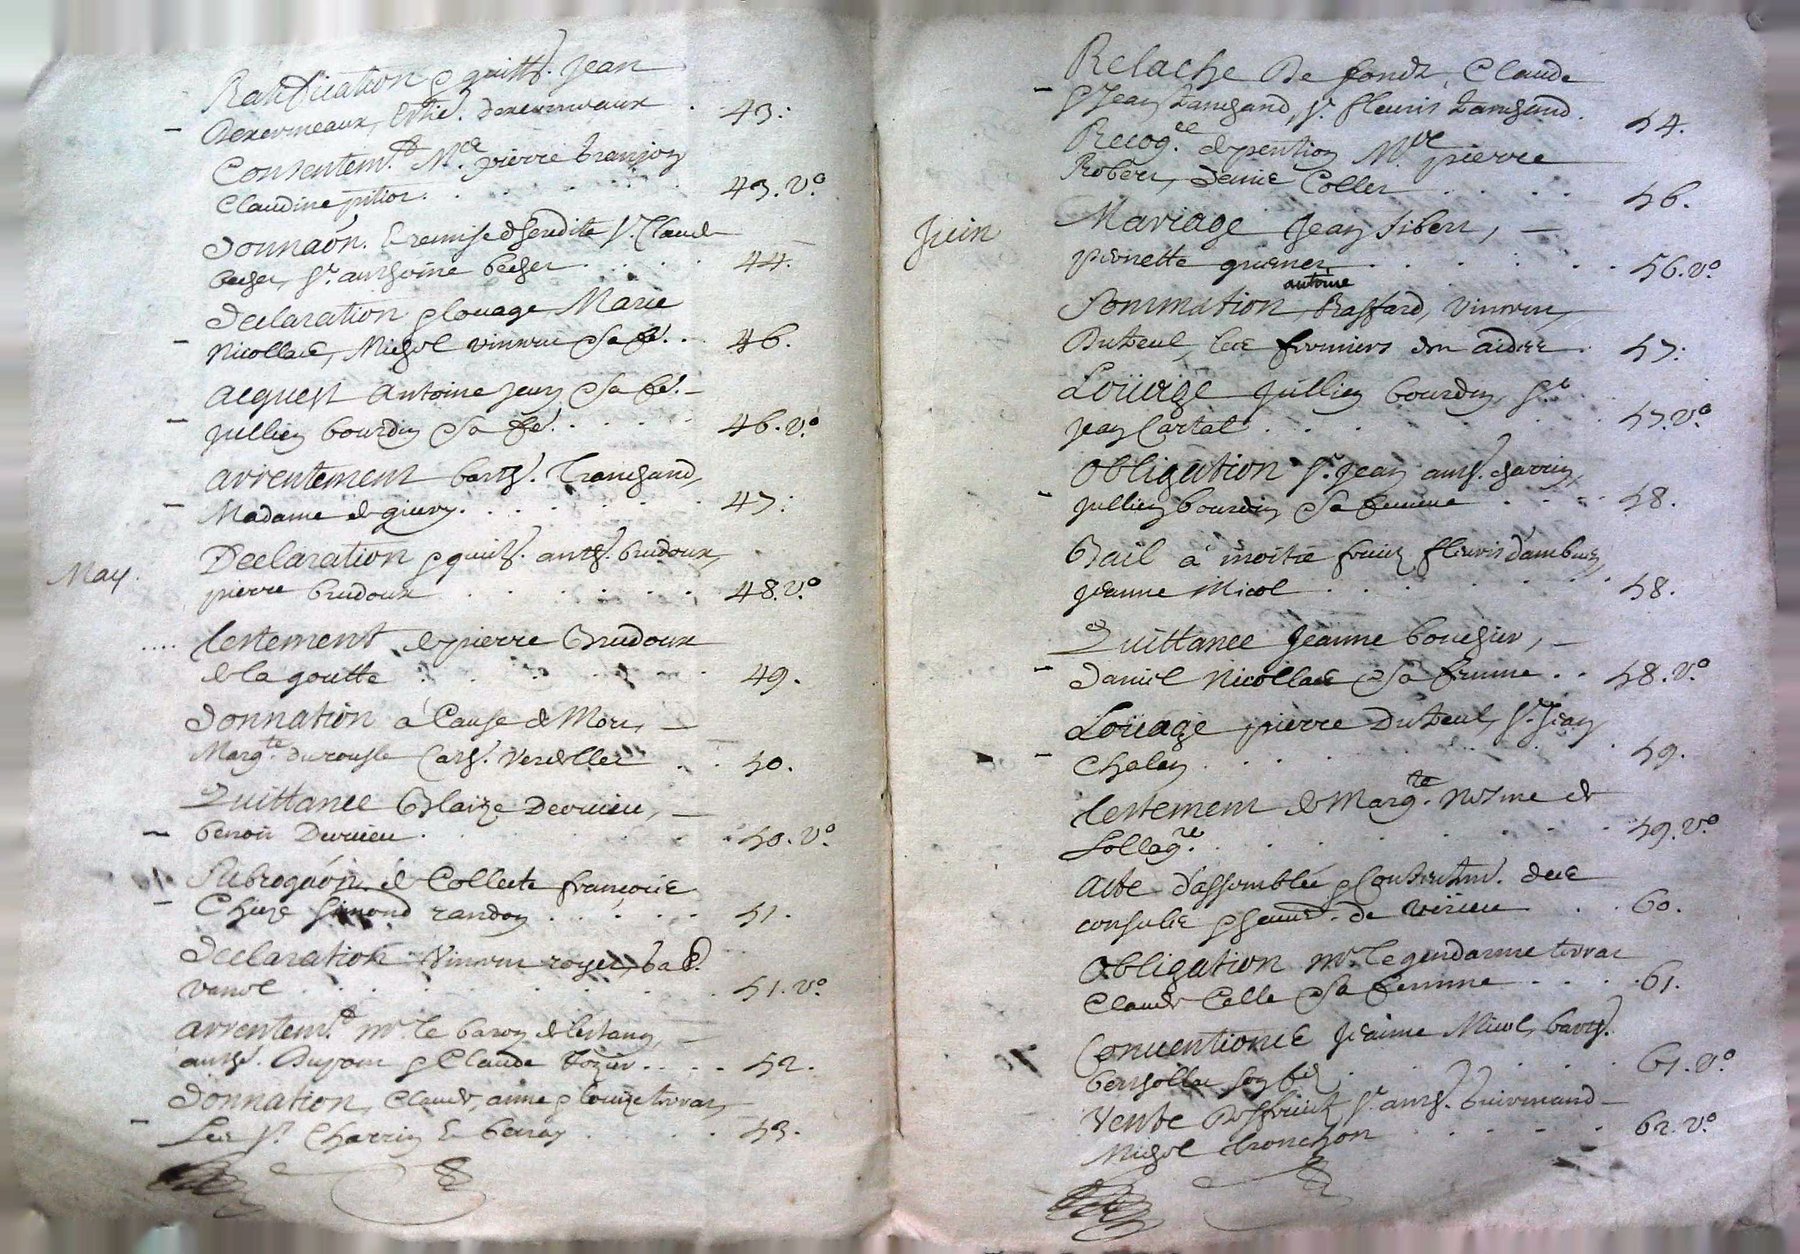 Ratification & quitt. Jean
Dexermeaux, 43.
Consentem.t M.re pierre tranjon
Claudine pitior. 43. v.o
Donnaon. & remise d'heredité s.r Claude
becher, s.r anthoine becher 44.
Declaration & louage Marie
Nicollas, Michel vincen & sa fe. 46.
acquest Antoine Jeury & sa fe.
Jullien bourdin & sa fe. 46. v.o
arrentement barth. Tranchand,
Madame de giury. 47.
May.
Declaration & quitt. anth. brudoux,
pierre brudoux 48. v.o
testement de pierre Brudoux
de la goutte 49.
Donnation à Cause de Mort,
Marg.te Cath. 50.
Quittance Blaize Devrieu,
benoit Devrieu 50. v.o
Subrogaón de Collecte françoise
Chieze Simond randon 51.
Declaration Vincen royer, bap.
vanel 51. v.o
arrentem.t m.r le baron de lestang,
anth. Dujour & Claude 52.
Donnation, Claude, anne & louize torrar,
Les s.r Charrin & berray 53.
Relache De fonds, Claude
& Jean Tanchand, s.r fleuris tanchand. 54.
Recog.ce de pention M.re pierre
Robert, Denis Coller 56.
Juin
Mariage Jean sibert,
pierrette grienet 56. v.o
antoine
Sommation Raffard, Vincen,
Duteul, les fermiers des aides 57.
Loüage Jullien bourdin, s.r
Jean Cartal 57. v.o
Obligation s.r Jean anth. charrin,
Jullien bourdin & sa femme 58.
Bail à moitié fruit fleuris dambuis,
Jeanne Micol 58.
Quittance Jeanne bouchier,
Daniel Nicollas & sa femme 58. v.o
Loüage pierre Duteul, s.r Jean
Chalen 59.
testement de Marg.te de
59. v.o
Acte d'assemblée & Consentem. des
consuls & de virieu 60.
Obligation m.r le gendarme torrar
Claude Celle & sa femme 61.
Conventions Jeanne Micol, barth.
berthollet son fils 61. v.o
Vente De fruits, s.r anth. Guirmand
Michel tronchon 62. v.o